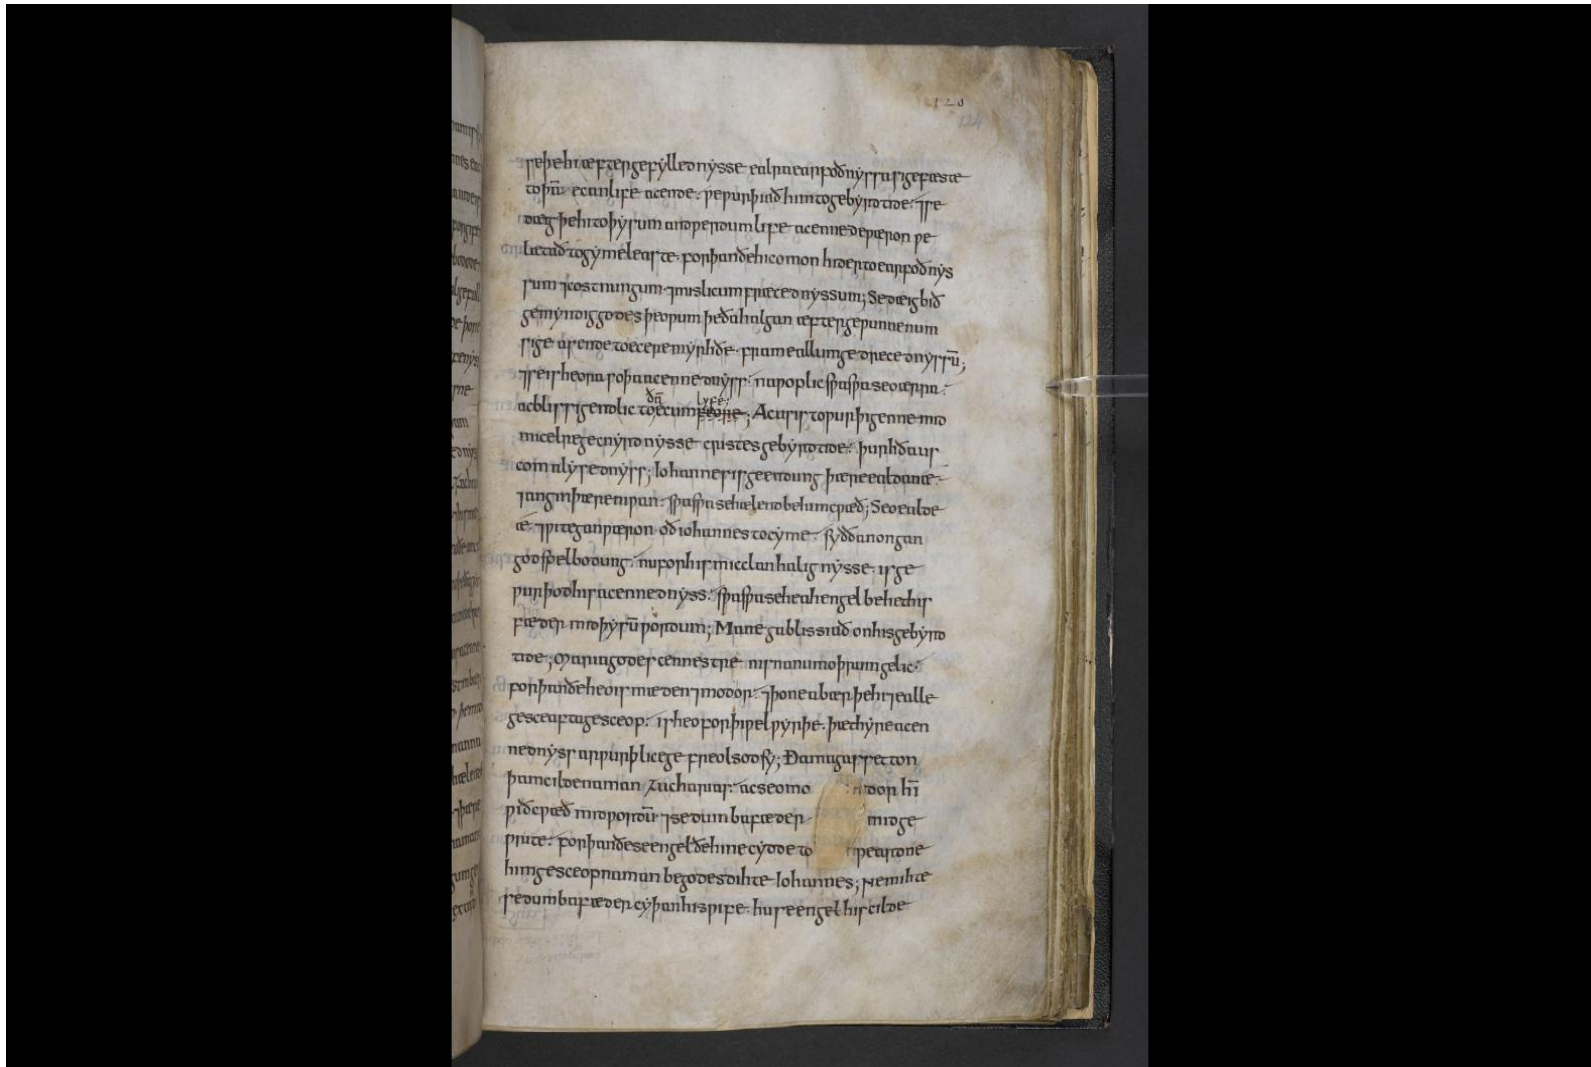 120
124
se þe hi æfter gefyllednysse ealra earfoðnyssa sigefæste
to þā ecan life acende. ƿe ƿurþiað him to gebyrdtide. ⁊ se
dæig þe hi to þysum andƿerdum life acennede ƿæron ƿe
lætað to gymeleaste. forþan ðe hi comon hider to earfoðnys
sum ⁊ costnungum. ⁊ mislicum fræcednyssum; Se dæig bið
gemyndig godes þeoƿum þe ða halgan æfter geƿunnenum
sige asende to ecere myrhðe. fram eallum gedrecednyssū;
⁊ se is heora soþa acennednyss. na ƿoplic sƿa sƿa seo ærra.
ac blissigendlic to ðā ecum feore lyfe; Ac us is to ƿurþigenne mid
micelre gecnyrdnysse cristes gebyrdtide. þurh ða us
com alysednyss; Iohannes is geendung þære ealdan æ.
⁊ angin þære niƿan. sƿa sƿa se hælend be him cƿæð; Seo ealde
æ. ⁊ ƿitegan ƿæron oð iohannes tocyme. syððan ongan
godspelbodung. nu for his micclan halignysse. is ge
ƿurþod his acennednyss. sƿa sƿa se heahengel behet his
fæder mid þysū ƿordum; Manega blissiað on his gebyrd
tide; Maria godes cennestre nis nanum oþrum gelic.
forþan ðe heo is mæden ⁊ modor. ⁊ þone abær þe hi ⁊ ealle
gesceafta gesceop. is heo forþi ƿel ƿyrþe. þæt hyre acen
nednyss arƿurþlice gefreolsod sy; Ða magas setton
þam cilde naman zacharias. ac seo modor hī
ƿiðcƿæð mid ƿordū. ⁊ se dumba fæder mid ge
ƿrite. forþan ðe se engel ðe hine cydde toƿeardne
him gesceop naman be godes dihte Iohannes; Ne mihte
se dumba fæder cyþan his ƿife. hu se engel his cilde